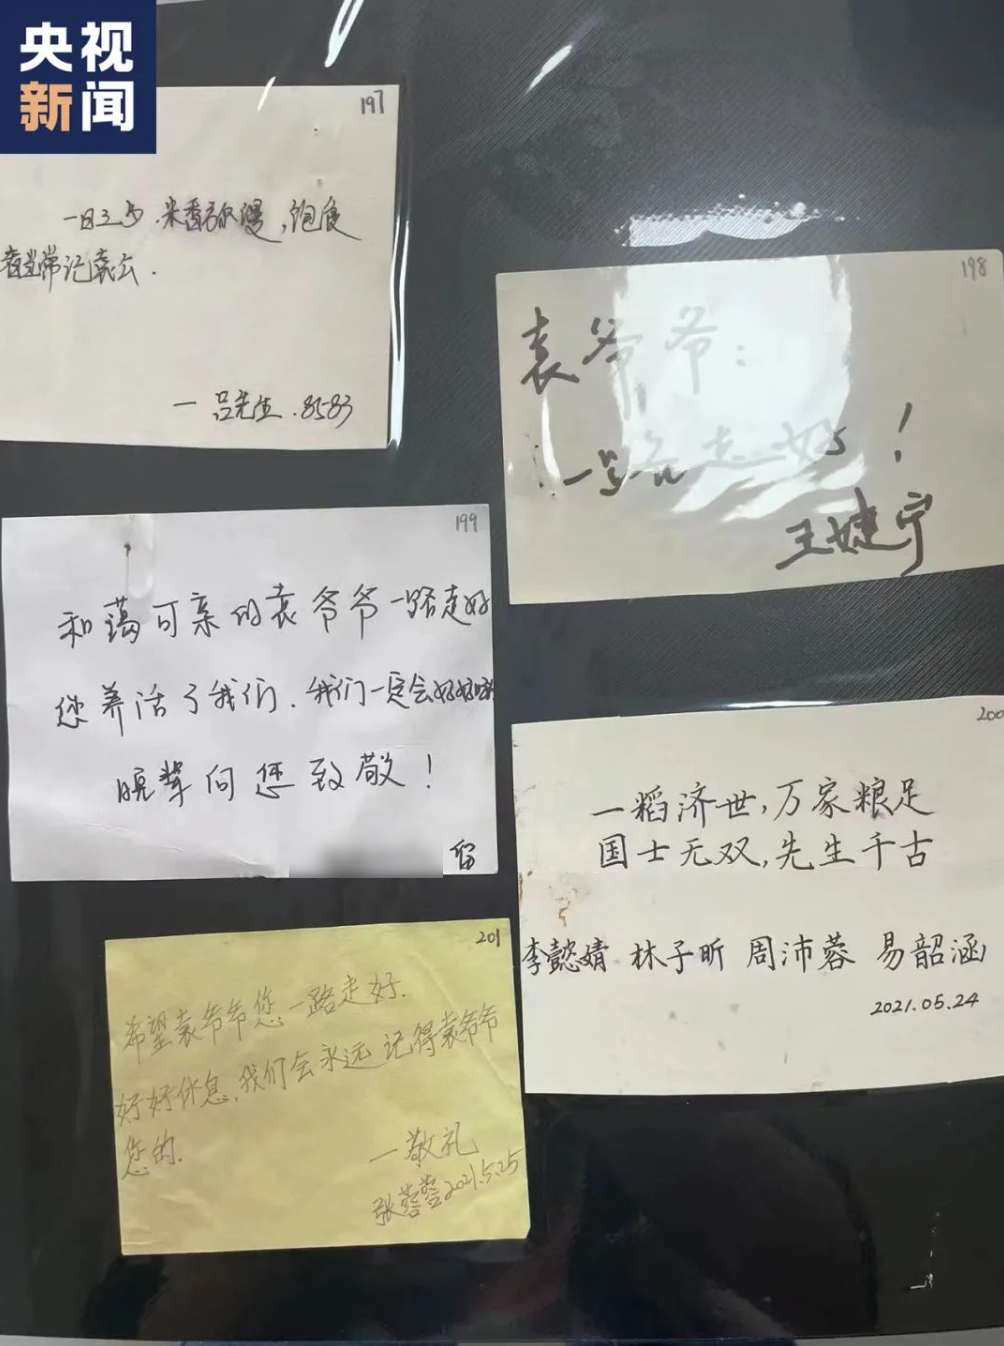 央视
新闻
197
一日三歺.米香弥漫,饱食
者当常记袁公.
一吕先生.8583
198
袁爷爷:
一路走好!
王婕宁
199
和蔼可亲的袁爷爷一路走好
您养活了我们.我们一定会好好
晚辈向您致敬!
留
200
一稻济世,万家粮足
国士无双,先生千古
李懿婧 林子昕 周沛蓉 易韶涵
2021.05.24
201
希望袁爷爷您一路走好.
好好休息,我们会永远记得袁爷爷
您的.
一敬礼
张蓉蓉2021.5.25